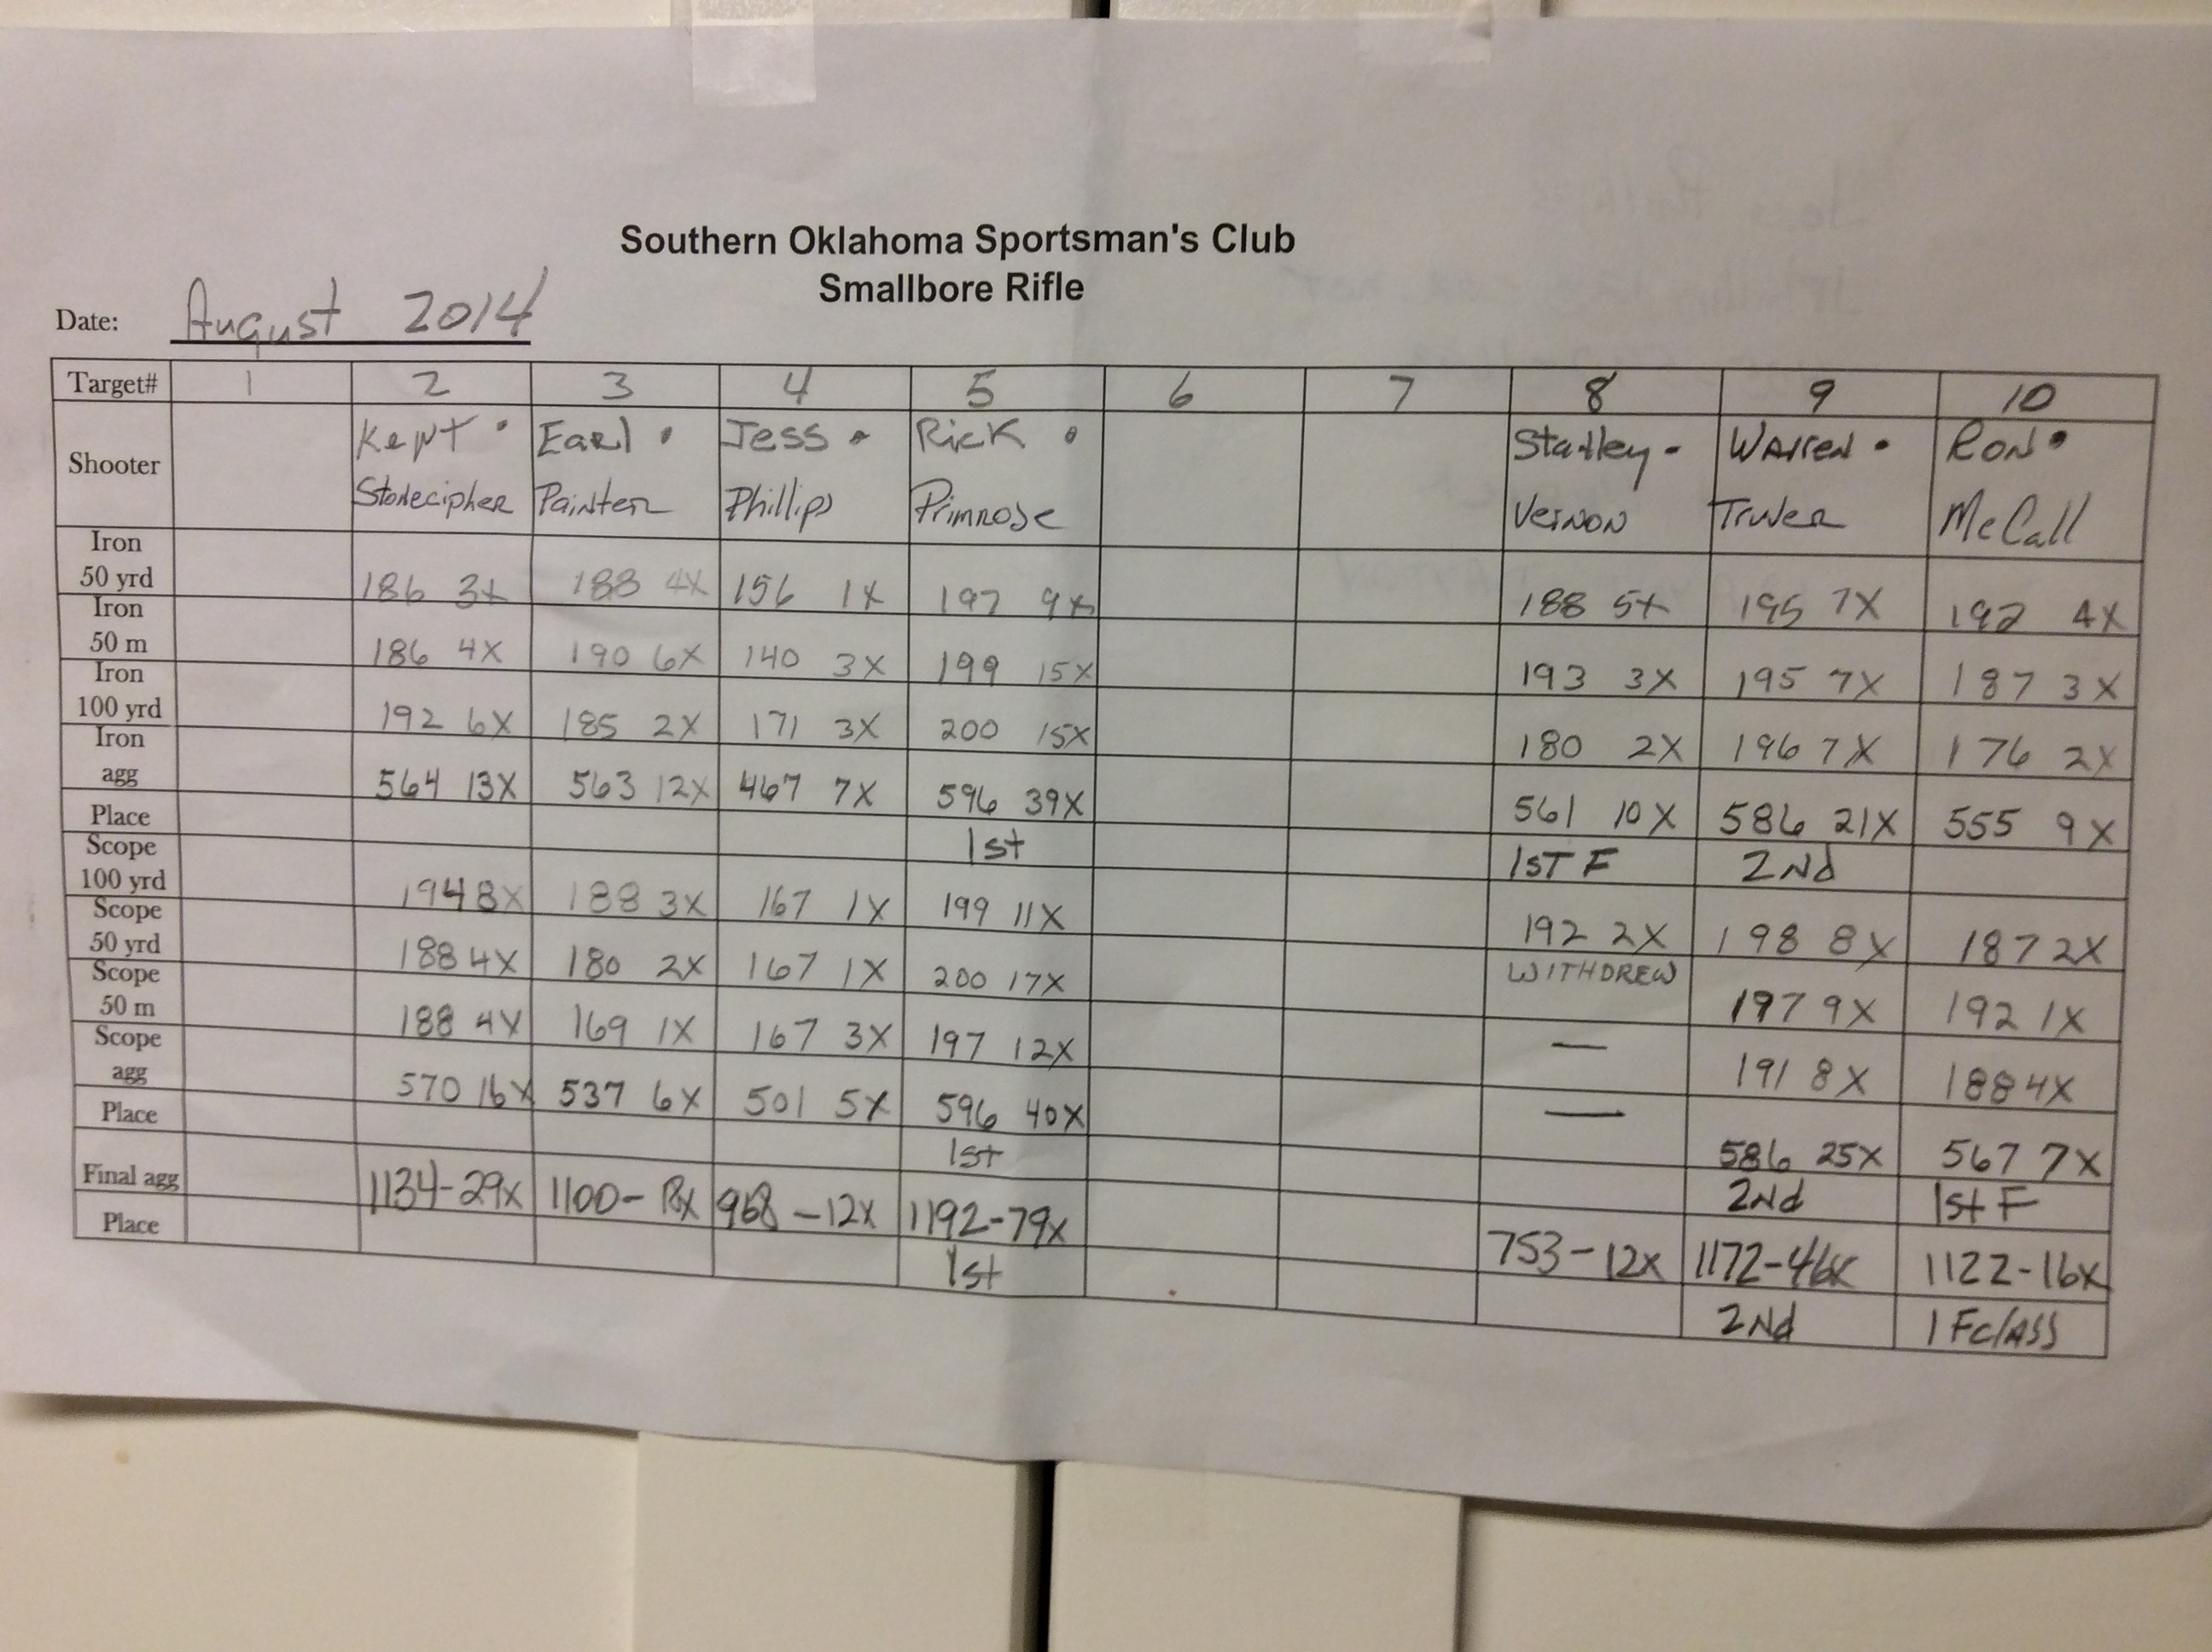 Southern Oklahoma Sportsman's Club
Smallbore Rifle
Date: August 2014
Target# 1 2 3 4 5 6 7 8 9 10
Shooter Kent Stonecipher Earl Painter Jess Phillips Rick Primrose Stanley Vernon Warren Truver Ron McCall
Iron 50 yrd 186 3x 188 4X 156 1X 197 9x 188 5x 195 7X 192 4X
Iron 50 m 186 4X 190 6X 140 3X 199 15X 193 3X 195 7X 187 3X
Iron 100 yrd 192 6X 185 2X 171 3X 200 15X 180 2X 196 7X 176 2X
Iron agg 564 13X 563 12X 467 7X 596 39X 561 10X 586 21X 555 9X
Place 1st 1ST F 2Nd
Scope 100 yrd 194 8X 188 3X 167 1X 199 11X 192 2X 198 8X 187 2X
Scope 50 yrd 188 4X 180 2X 167 1X 200 17X WITHDREW 197 9X 192 1X
Scope 50 m 188 4X 169 1X 167 3X 197 12X — 191 8X 188 4X
Scope agg 570 16X 537 6X 501 5X 596 40X — 586 25X 567 7X
Place 1st 2Nd 1st F
Final agg 1134-29x 1100-18x 968-12x 1192-79x 753-12x 1172-46x 1122-16x
Place 1st 2Nd 1 FclASS